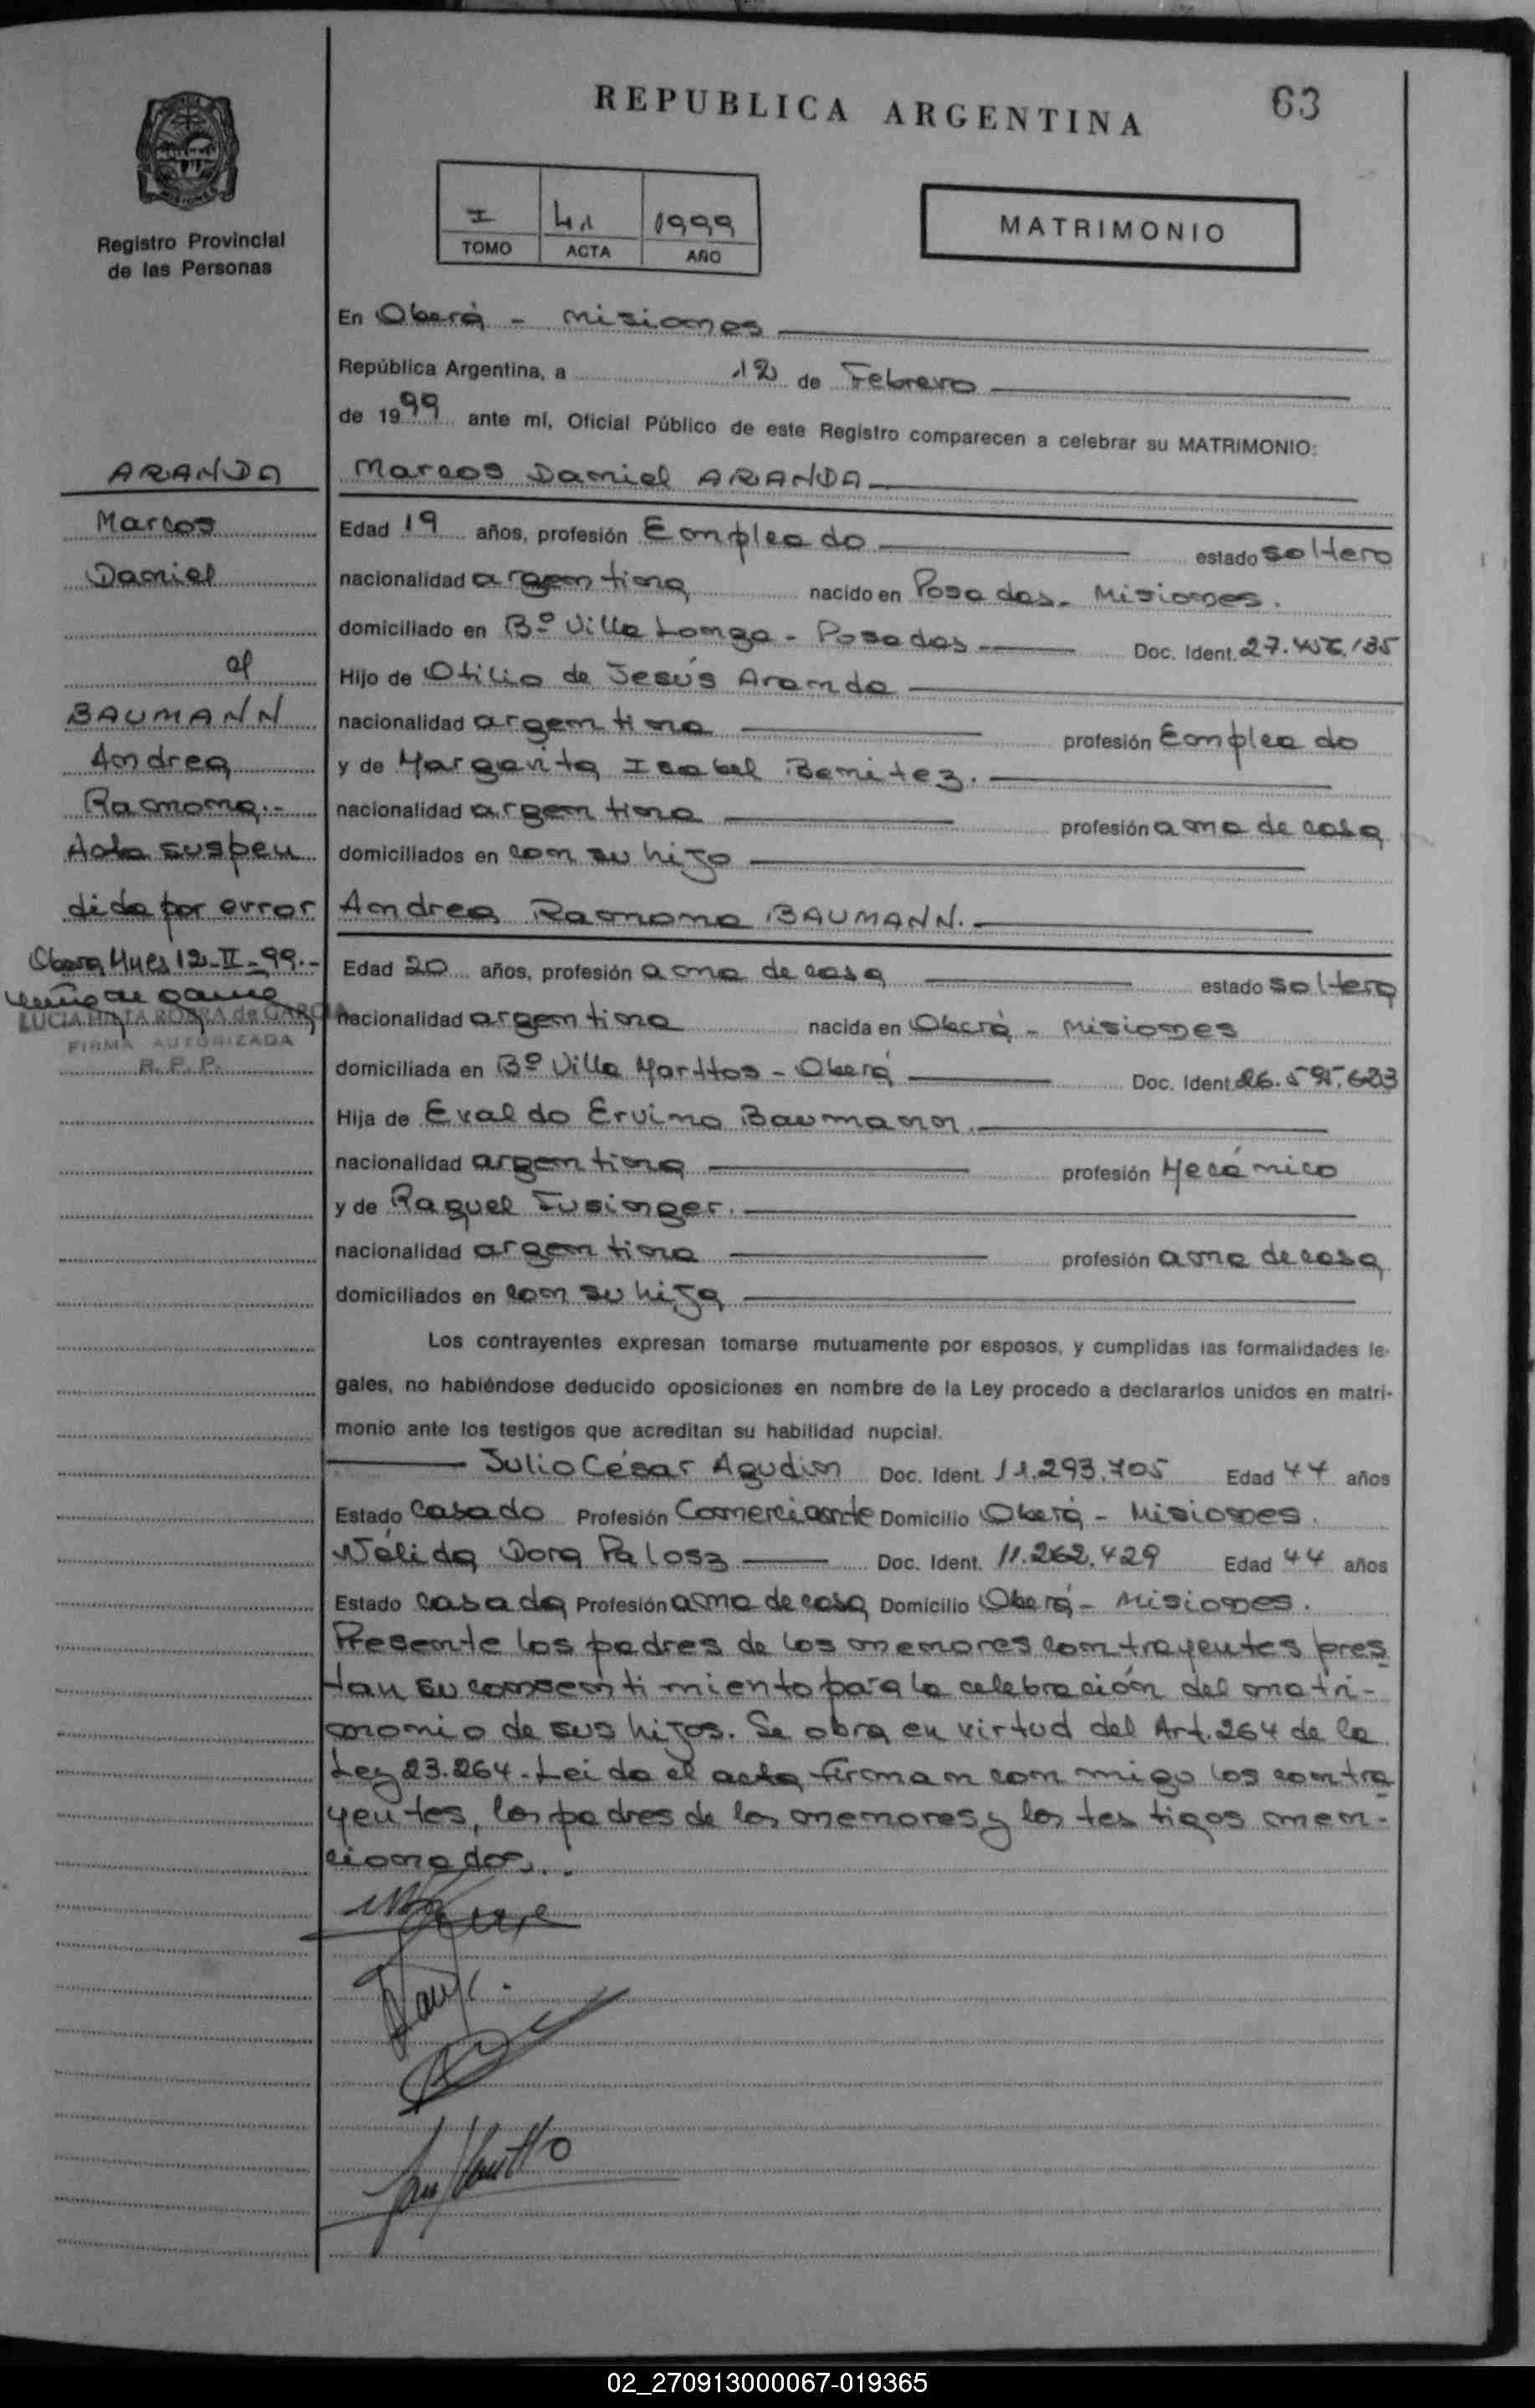 REPUBLICA ARGENTINA
63
Registro Provincial
de las Personas
I 41 1999
TOMO ACTA AÑO
MATRIMONIO
En Oberá - Misiones
República Argentina, a 12 de Febrero
de 1999 ante mí, Oficial Público de este Registro comparecen a celebrar su MATRIMONIO:
ARANDA
Marcos
Daniel
BAUMANN
Andrea
Ramona.-
Acta suspen
dida por error
Oberá Mnes 12-II-99.-
LUCIA de GARCIA
FIRMA AUTORIZADA
R. P. P.
Marcos Daniel ARANDA
Edad 19 años, profesión Empleado estado soltero
nacionalidad argentina nacido en Posadas - Misiones.
domiciliado en Bº Villa Longa - Posadas Doc. Ident. 27.
Hijo de Otilio de Jesús Aranda
nacionalidad argentina profesión Empleado
y de Margarita Isabel Benitez.
nacionalidad argentina profesión ama de casa
domiciliados en con su hijo
Andrea Ramona BAUMANN.
Edad 20 años, profesión ama de casa estado soltera
nacionalidad argentina nacida en Oberá - Misiones
domiciliada en Bº Villa Oberá Doc. Ident. 26.595.623
Hija de Evaldo Ervino Baumann.
nacionalidad argentina profesión Mecánico
y de Raquel Fusinger.
nacionalidad argentina profesión ama de casa
domiciliados en con su hija
Los contrayentes expresan tomarse mutuamente por esposos, y cumplidas las formalidades le-
gales, no habiéndose deducido oposiciones en nombre de la Ley procedo a declararlos unidos en matri-
monio ante los testigos que acreditan su habilidad nupcial.
Julio César Agudin Doc. Ident. 11.293.705 Edad 44 años
Estado casado Profesión Comerciante Domicilio Oberá - Misiones.
Nélida Dora Palosz Doc. Ident. 11.262.429 Edad 44 años
Estado casada Profesión ama de casa Domicilio Oberá - Misiones.
Presente los padres de los menores contrayentes pres
tan su consentimiento para la celebración del matri-
monio de sus hijos. Se obra en virtud del Art. 264 de la
Ley 23.264. Leida el acta firman con migo los contra
yentes, los padres de los menores y los testigos men-
cionados..
02_270913000067-019365